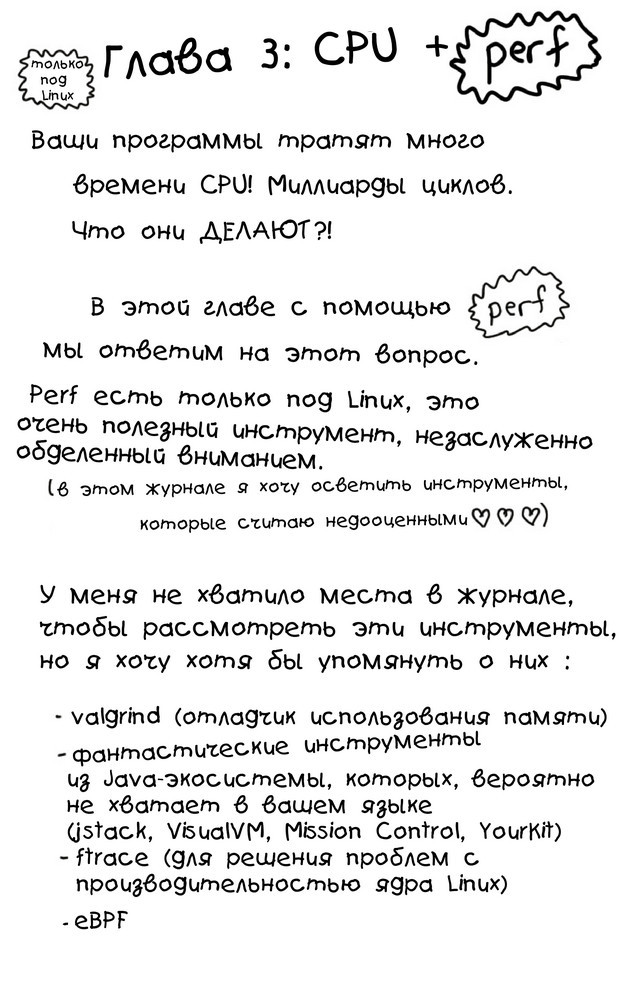 только
под
Linux
Глава 3: CPU + perf
Ваши программы тратят много
времени CPU! Миллиарды циклов.
Что они ДЕЛАЮТ?!
В этой главе с помощью perf
мы ответим на этот вопрос.
Perf есть только под Linux, это
очень полезный инструмент, незаслуженно
обделенный вниманием.
(в этом журнале я хочу осветить инструменты,
которые считаю недооценными♡♡♡)
У меня не хватило места в журнале,
чтобы рассмотреть эти инструменты,
но я хочу хотя бы упомянуть о них :
- valgrind (отладчик использования памяти)
- фантастические инструменты
из Java-экосистемы, которых, вероятно
не хватает в вашем языке
(jstack, VisualVM, Mission Control, YourKit)
- ftrace (для решения проблем с
производительностью ядра Linux)
- eBPF